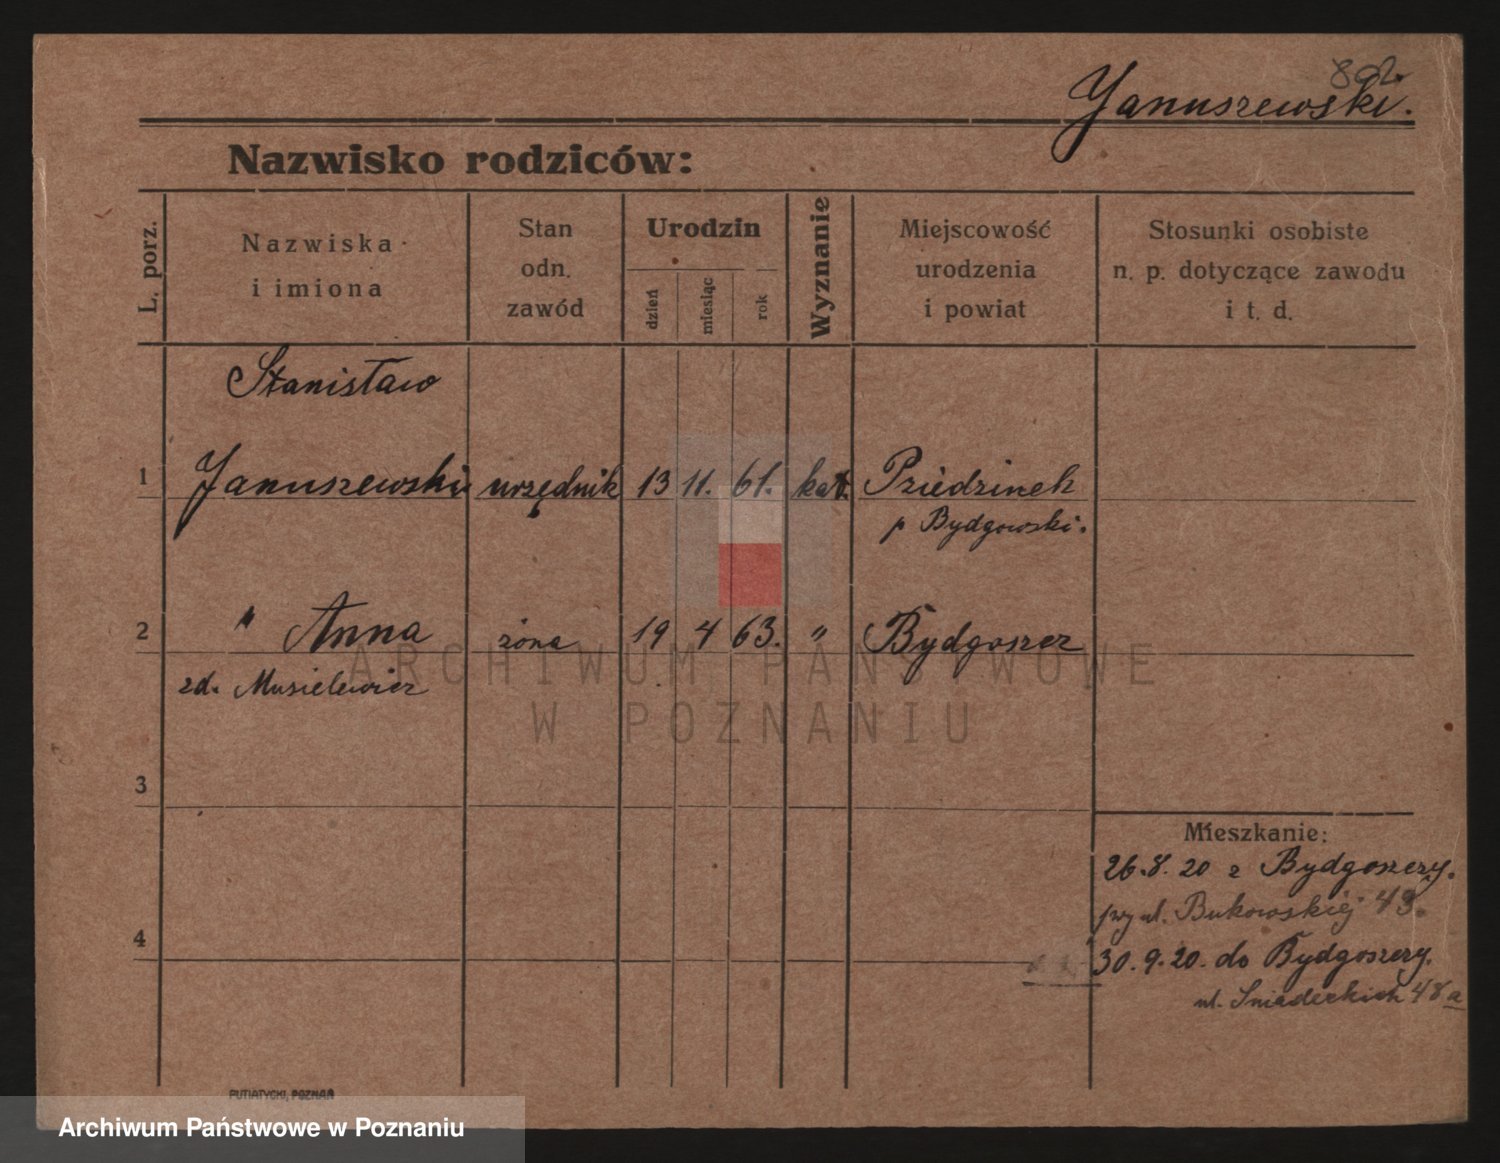 802.
Januszewski.
Nazwisko rodziców:
L. porz.
Nazwiska
i imiona
Stan
odn.
zawód
Urodzin
dzień
miesiąc
rok
Wyznanie
Miejscowość
urodzenia
i powiat
Stosunki osobiste
n. p. dotyczące zawodu
i t. d.
Stanisław
1 Januszewski urzędnik 13 11. 61. kat. Dziedzinek
p Bydgowski.
2 " Anna żona 19 4 63. " Bydgoszcz
zd. Musielewicz
ARCHIWUM PAŃSTWOWE
W POZNANIU
3
Mieszkanie:
26.8.20 z Bydgoszczy.
przy ul. Bukowskiej 43.
4
30.9.20. do Bydgoszczy.
ul. Sniadeckich 48a
PUTIATYCKI, POZNAŃ
Archiwum Państwowe w Poznaniu